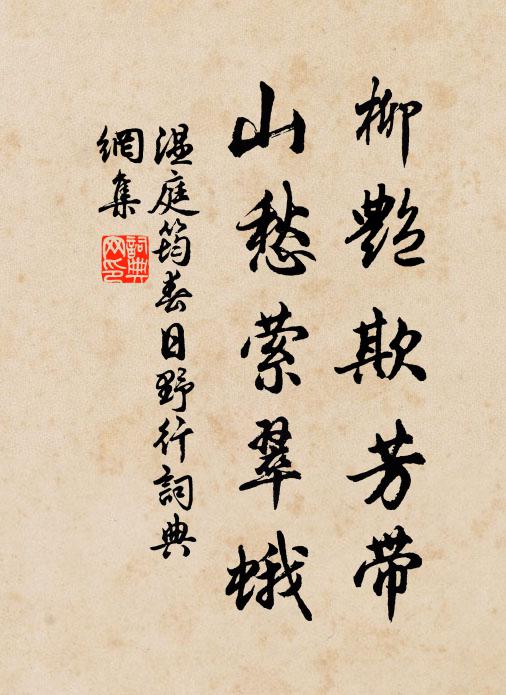 柳艷欺芳带
山愁萦翠蛾
温庭筠春日野行詞典
網集
詞典
网印